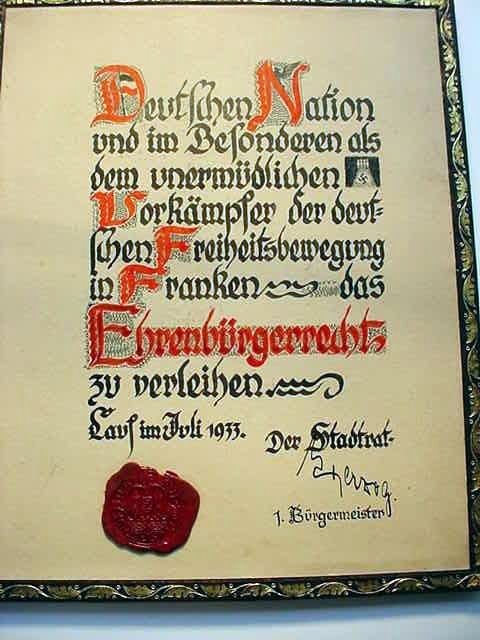 Deutschen Nation
und im Besonderen als
dem unermüdlichen
Vorkämpfer der deut-
schen Freiheitsbewegung
in Franken das
Ehrenbürgerrecht
zu verleihen.
Lauf im Juli 1933.
Der Stadtrat-
Herzog.
1. Bürgermeister